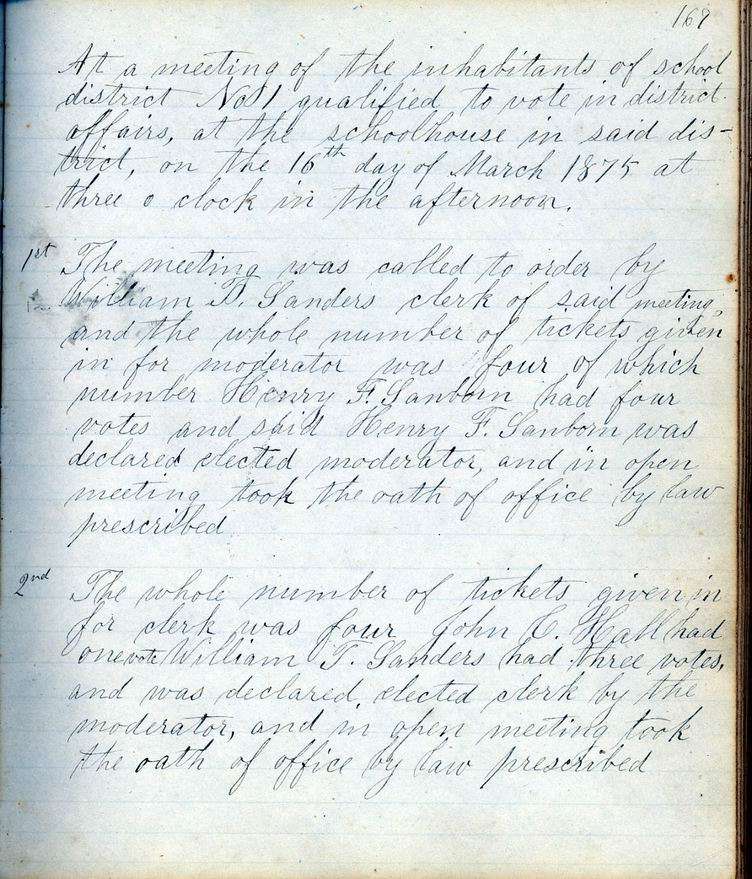 167
At a meeting of the inhabitants of school
district No 1 qualified to vote in district
affairs, at the schoolhouse in said dis-
trict, on the 16th day of March 1875 at
three o clock in the afternoon.
1st The meeting was called to order by
William T. Sanders clerk of said meeting,
and the whole number of tickets given
in for moderator was four of which
number Henry F. Sanborn had four
votes and said Henry F. Sanborn was
declared elected moderator, and in open
meeting took the oath of office by law
prescribed
2nd The whole number of tickets given in
for clerk was four John C. Hall had
one vote William T. Sanders had three votes,
and was declared, elected clerk by the
moderator, and in open meeting took
the oath of office by law prescribed